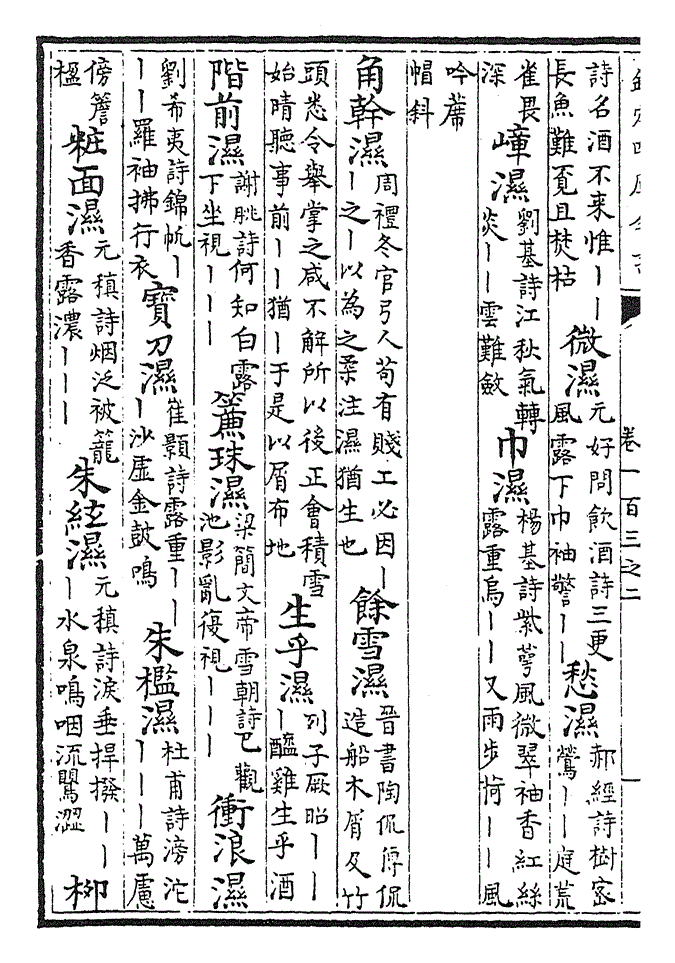 卷一百三之二
詩名酒不来惟丨丨
長魚難覓且焚枯
微濕
元好問飲酒詩三更
風露下巾袖警丨丨
愁濕
郝經詩樹宻
鶯丨丨庭荒
雀畏
深
嶂濕
劉基詩江秋氣轉
炎丨丨雲難斂
巾濕
楊基詩紫萼風微翠袖香紅絲
露重烏丨丨又雨步荷丨丨風
吟蓆
帽斜
角幹濕
周禮冬官弓人苟有賤工必因丨
丨之丨以為之柔注濕猶生也
餘雪濕
晉書陶侃傳侃
造船木屑及竹
頭悉令舉掌之咸不解所以後正會積雪
始晴聽事前丨丨猶丨于是以屑布地
生乎濕
列子厥昭丨丨
丨醯雞生乎酒
階前濕
謝朓詩何知白露
下坐視丨丨丨
簾珠濕
梁簡文帝雪朝詩已觀
池影亂復視丨丨丨
衝浪濕
劉希夷詩錦帆丨
丨丨羅袖拂行衣
寶刀濕
崔顥詩露重丨丨
丨沙虚金鼓鳴
朱檻濕
杜甫詩滂沱
丨丨丨萬慮
傍簷
楹
粧面濕
元稹詩烟泛被籠
香露濃丨丨丨
朱絃濕
元稹詩淚垂捍撥丨丨
丨水泉鳴咽流鸎澀
栁